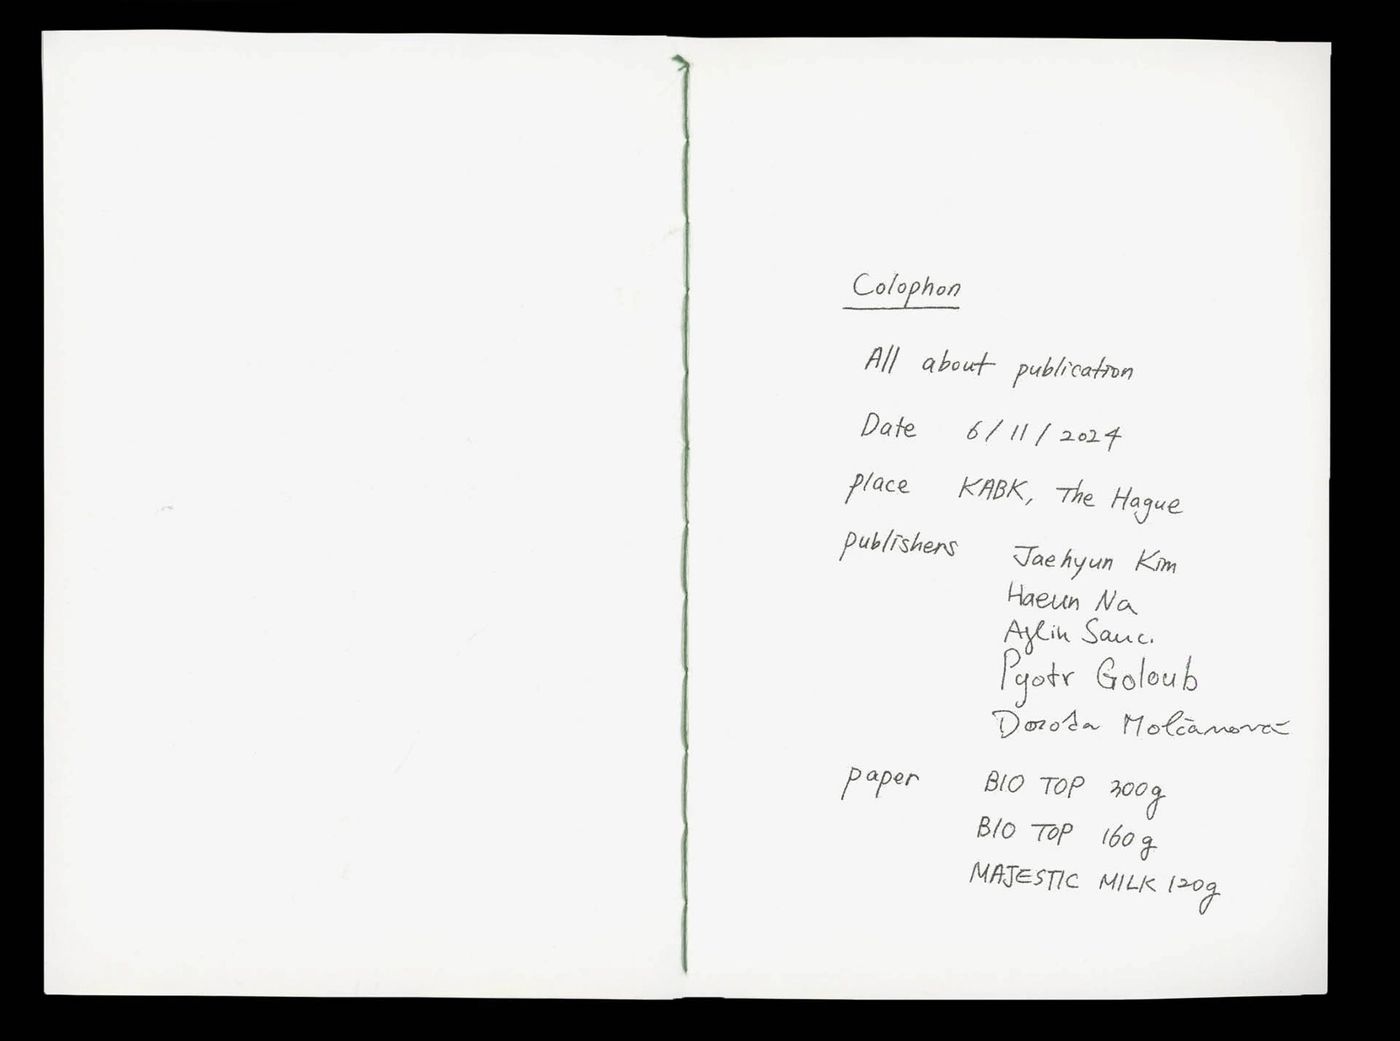 Colophon
All about publication
Date 6/11/2024
place KABK, The Hague
publishers Jaehyun Kim
Haeun Na
Pyotr Goloub
Molčanová
paper BIO TOP 300g
BIO TOP 160g
MAJESTIC MILK 120g